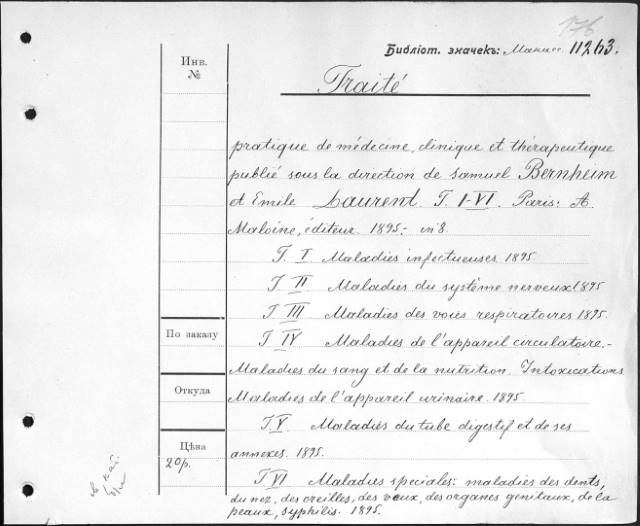 176
Библіот. значекъ: Манасс. 11263.
Инв.
№
Traité
pratique de médecine, clinique et thérapeutique
publié sous la direction de Samuel Bernheim
et Emile Laurent. T. I-VI. Paris: A.
Maloine, éditeur. 1895.- in 8.
T. I. Maladies infectueuses. 1895.
T. II. Maladies du système nerveux. 1895
T. III Maladies des voies respiratoires 1895.
По заказу
T. IV Maladies de l'appareil circulatoire.-
Maladies du sang et de la nutrition. Intoxications.
Откуда
Maladies de l'appareil urinaire. 1895.
T. V. Maladies du tube digestif et de ses
Цѣна
annexes. 1895.
20р.
T. VI Maladies speciales: maladies des dents,
du nez, des oreilles, des yeux, des organes genitaux, de la
peaux, syphilis. 1895.